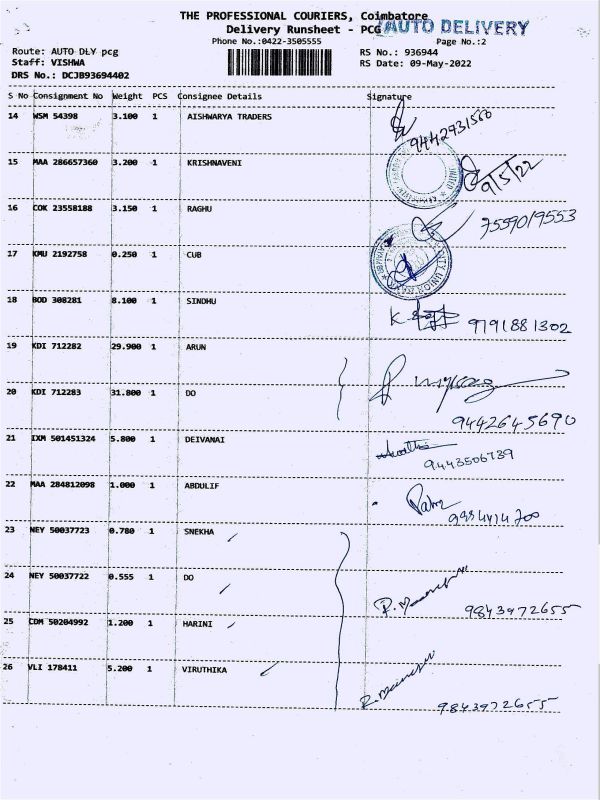 THE PROFESSIONAL COURIERS, Coimbatore
Delivery Runsheet - PCG
AUTO DELIVERY
Phone No.:0422-3505555
Page No.:2
Route: AUTO DLY pcg
RS No.: 936944
Staff: VISHWA
RS Date: 09-May-2022
DRS No.: DCJB93694402
S No Consignment No Weight PCS Consignee Details Signature
14 WSM 54398 3.100 1 AISHWARYA TRADERS
9442931560
15 MAA 286657360 3.200 1 KRISHNAVENI
9/5/22
16 COK 23558188 3.150 1 RAGHU
7559019553
17 KMU 2192758 0.250 1 CUB
18 BOD 308281 8.100 1 SINDHU
9791881302
19 KDI 712282 29.900 1 ARUN
20 KDI 712283 31.800 1 DO
9442645690
21 IXM 501451324 5.800 1 DEIVANAI
9443506739
22 MAA 284812098 1.000 1 ABDULIF
23 NEY 50037723 0.780 1 SNEKHA
24 NEY 50037722 0.555 1 DO
9843972655
25 CDM 50204992 1.200 1 HARINI
26 VLI 178411 5.200 1 VIRUTHIKA
9843972655